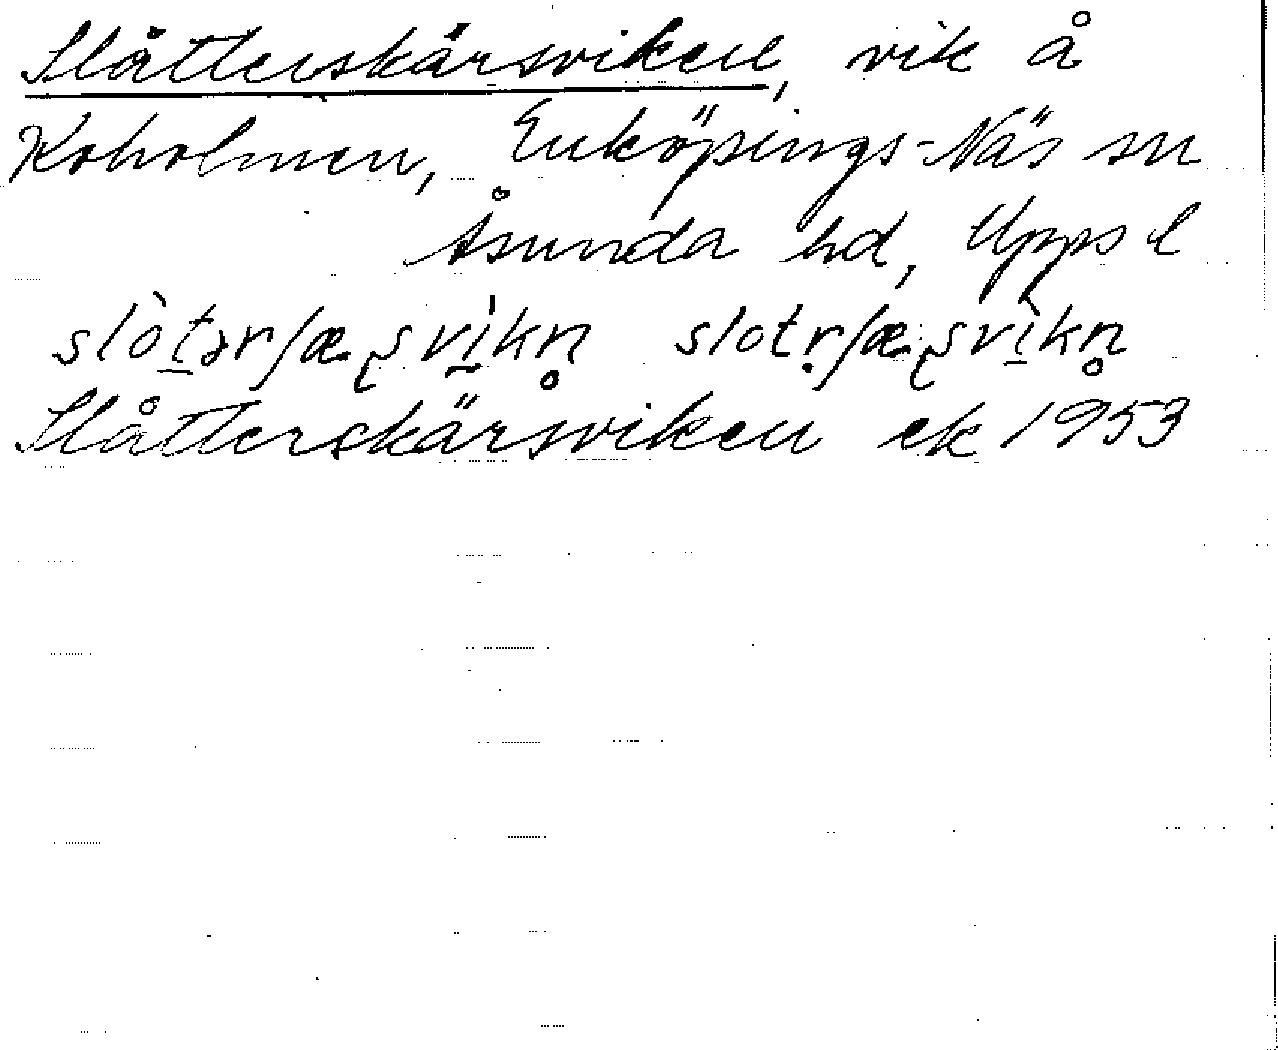 Slåtterskärsviken, vik å
Koholmen, Enköpings-Näs sn
Åsunda hd, Upps l
slòt̲ərʃæ̣ʂvìkn̥ slotṛʃæ̣ʂvìkn̥
Slåtterskärsviken ek 1953